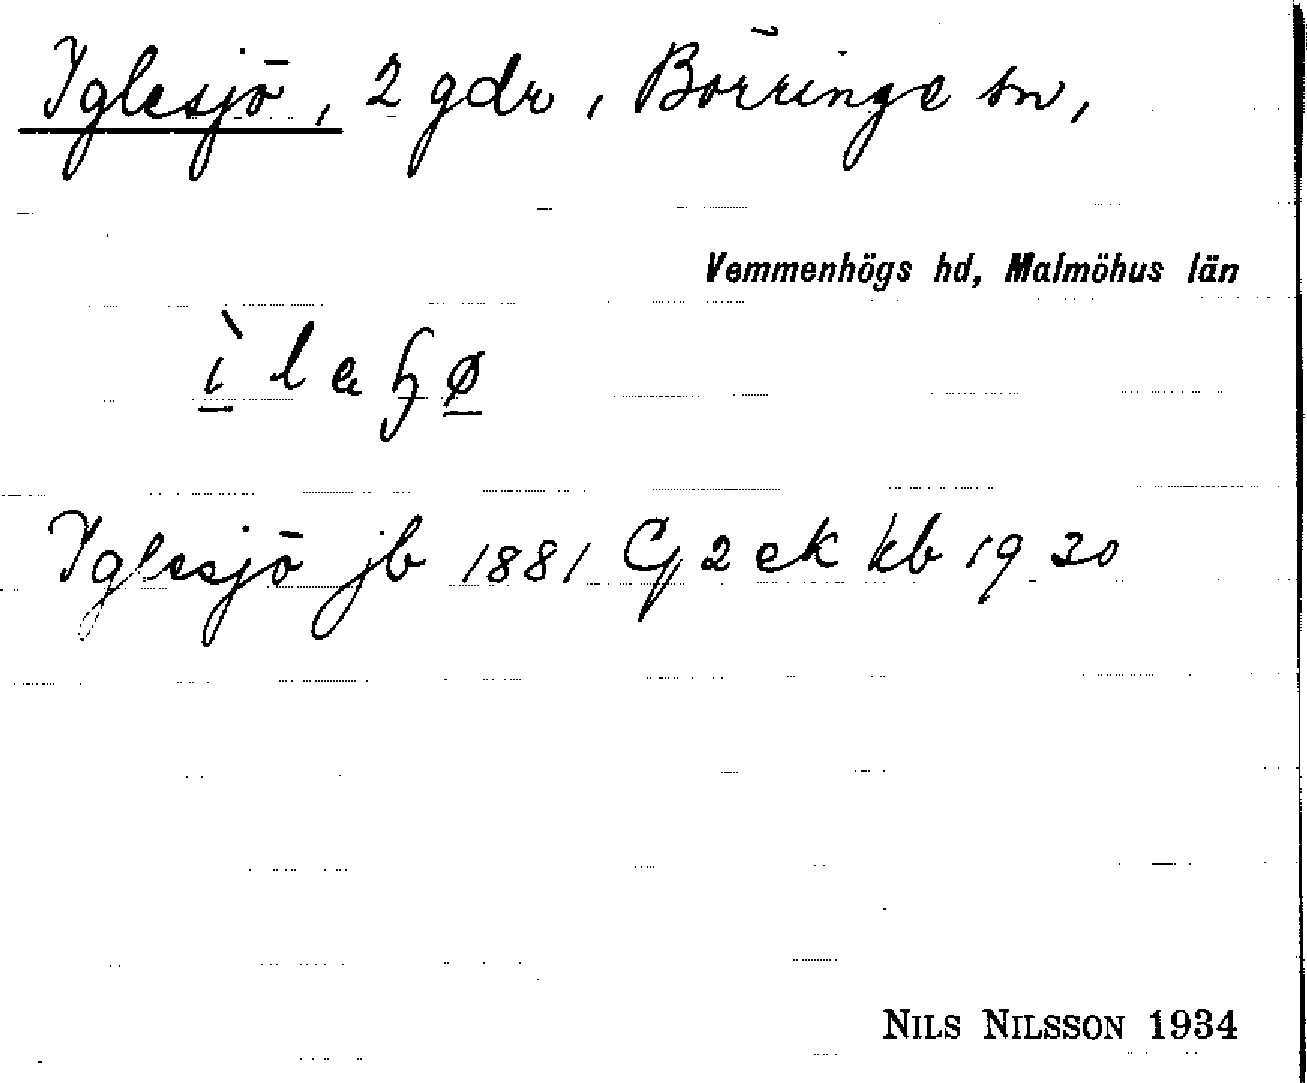 Iglesjö, 2 gdr, Börringe sn,
Vemmenhögs hd, Malmöhus län
Iglesjö jb 1881 Cg 2 ek kb 1930
NILS NILSSON 1934